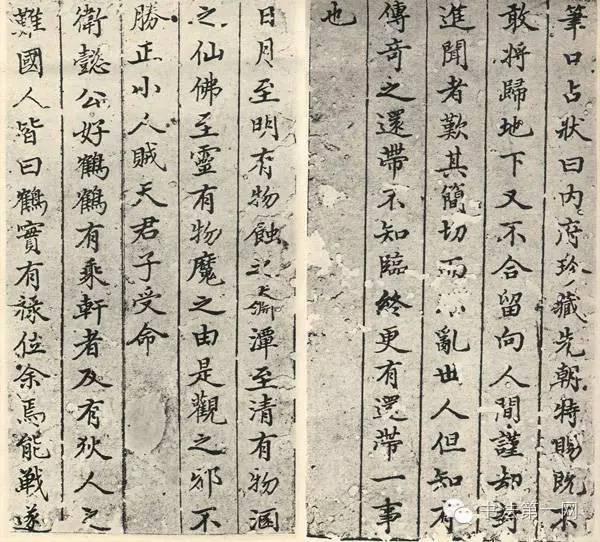 筆口占狀曰內府珍藏先朝特賜既不
敢將歸地下又不合留向人間謹却封
進聞者歎其簡切而亂世人但知有
傳奇之還帶不知臨終更有還帶一事
也
日月至明有物蝕之潭至清有物涸
之仙佛至靈有物魔之由是觀之邪不
勝正小人賊天君子受命
衛懿公好鶴鶴有乘軒者及有狄人之
難國人皆曰鶴實有祿位余焉能戰遂
书法第一网